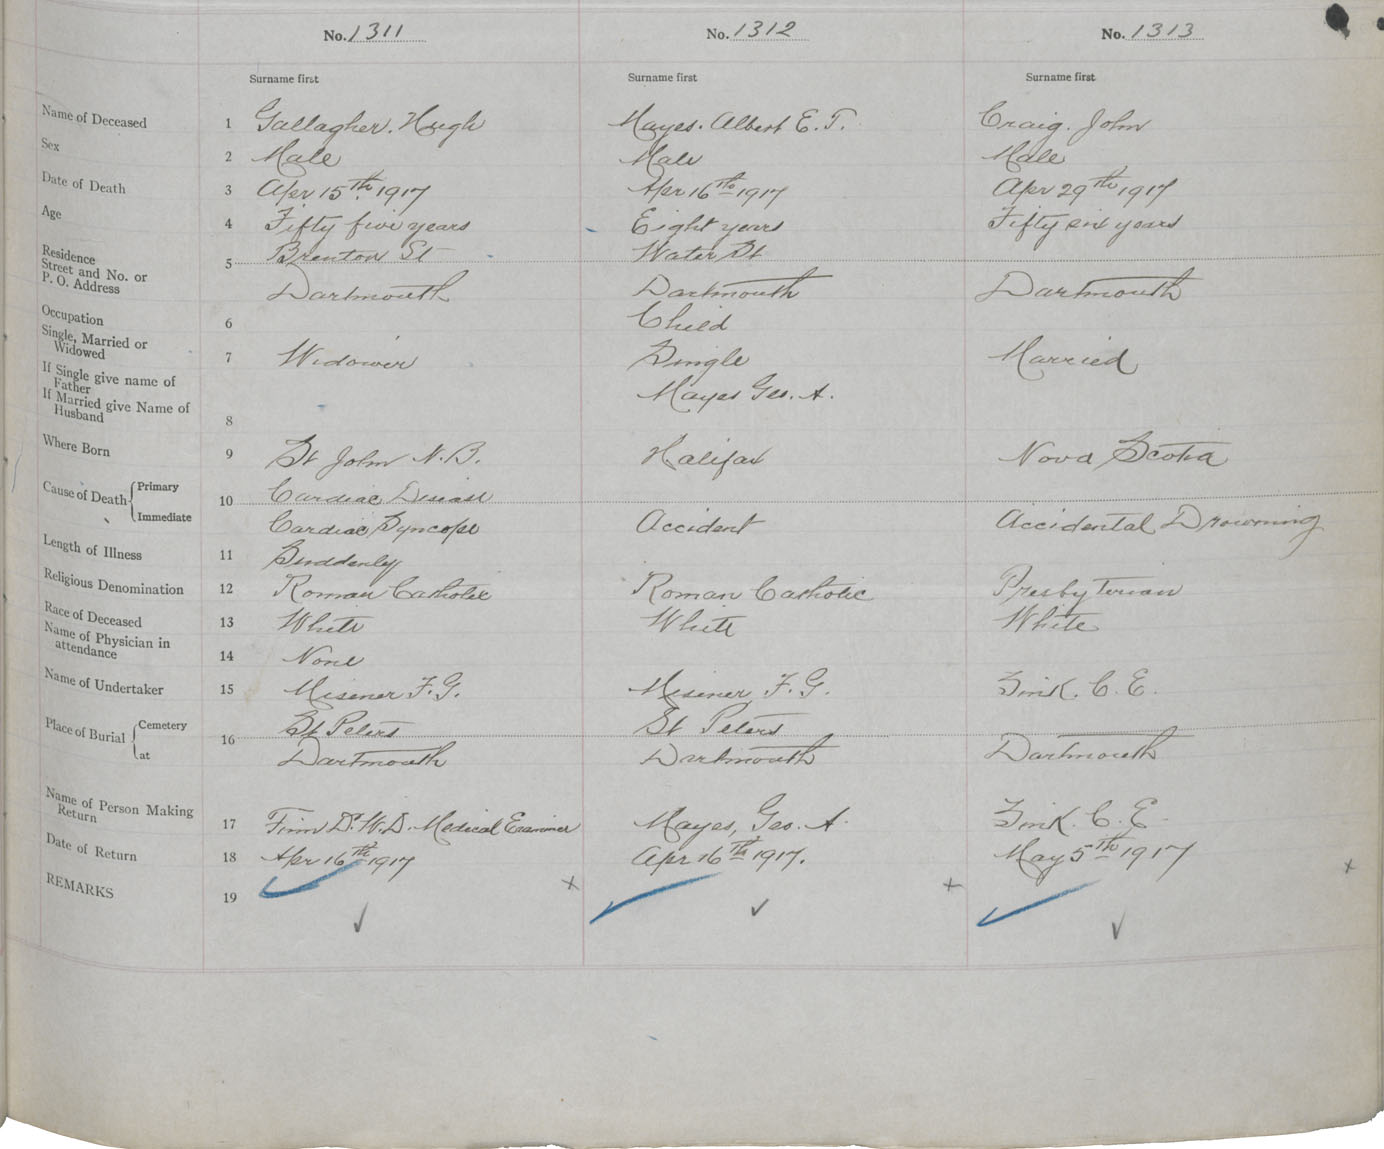 No. 1311 No. 1312 No. 1313
Surname first Surname first Surname first
Name of Deceased 1 Gallagher. Hugh Mayes. Albert E. T. Craig. John
Sex 2 Male Male Male
Date of Death 3 Apr 15th 1917 Apr 16th 1917 Apr 29th 1917
Age 4 Fifty five years Eight years Fifty six years
Residence Brenton St Water St
Street and No. or 5
P. O. Address Dartmouth Dartmouth Dartmouth
Occupation 6 Child
Single, Married or
Widowed 7 Widower Single Married
If Single give name of
Father Mayes Geo. A.
If Married give Name of
Husband 8
Where Born 9 St John N.B. Halifax Nova Scotia
Cause of Death Primary 10 Cardiac Disease
Immediate Cardiac Syncope Accident Accidental Drowning
Length of Illness 11 Suddenly
Religious Denomination 12 Roman Catholic Roman Catholic Presbyterian
Race of Deceased 13 White White White
Name of Physician in
attendance 14 None
Name of Undertaker 15 Misener F. G. Misener F. G. Zink. C. E.
Place of Burial Cemetery 16 St Peters St Peters
at Dartmouth Dartmouth Dartmouth
Name of Person Making
Return 17 Finn Dr. W. D. Medical Examiner Mayes, Geo. A. Zink. C. E.
Date of Return 18 Apr 16th 1917 Apr 16th 1917. May 5th 1917
REMARKS 19